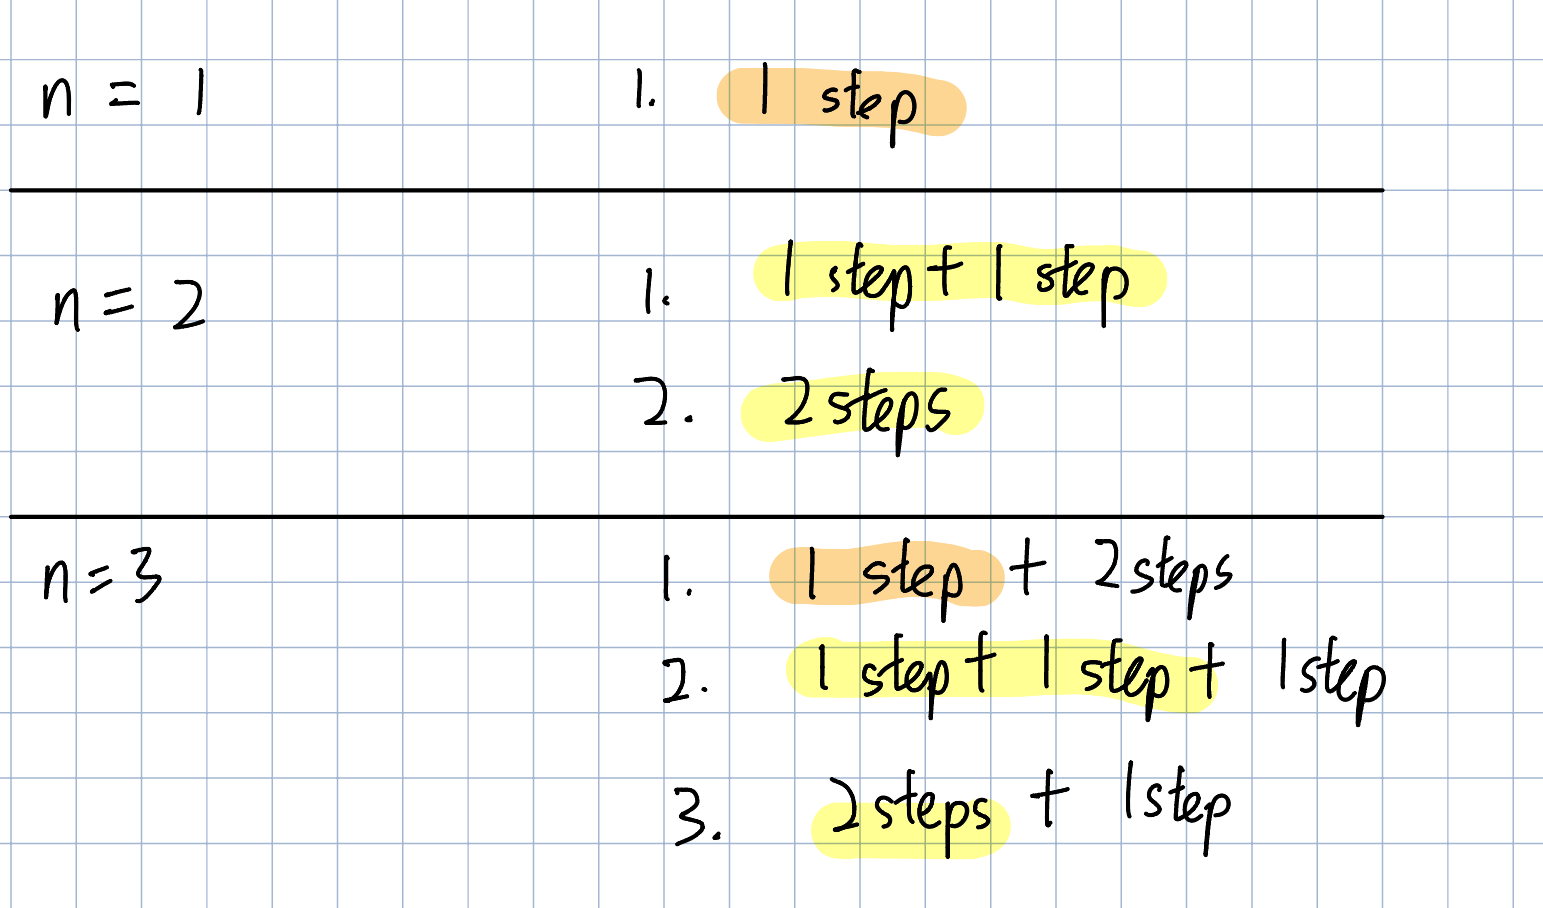 n = 1 1. 1 step
n = 2 1. 1 step + 1 step
2. 2 steps
n = 3 1. 1 step + 2 steps
2. 1 step + 1 step + 1 step
3. 2 steps + 1 step